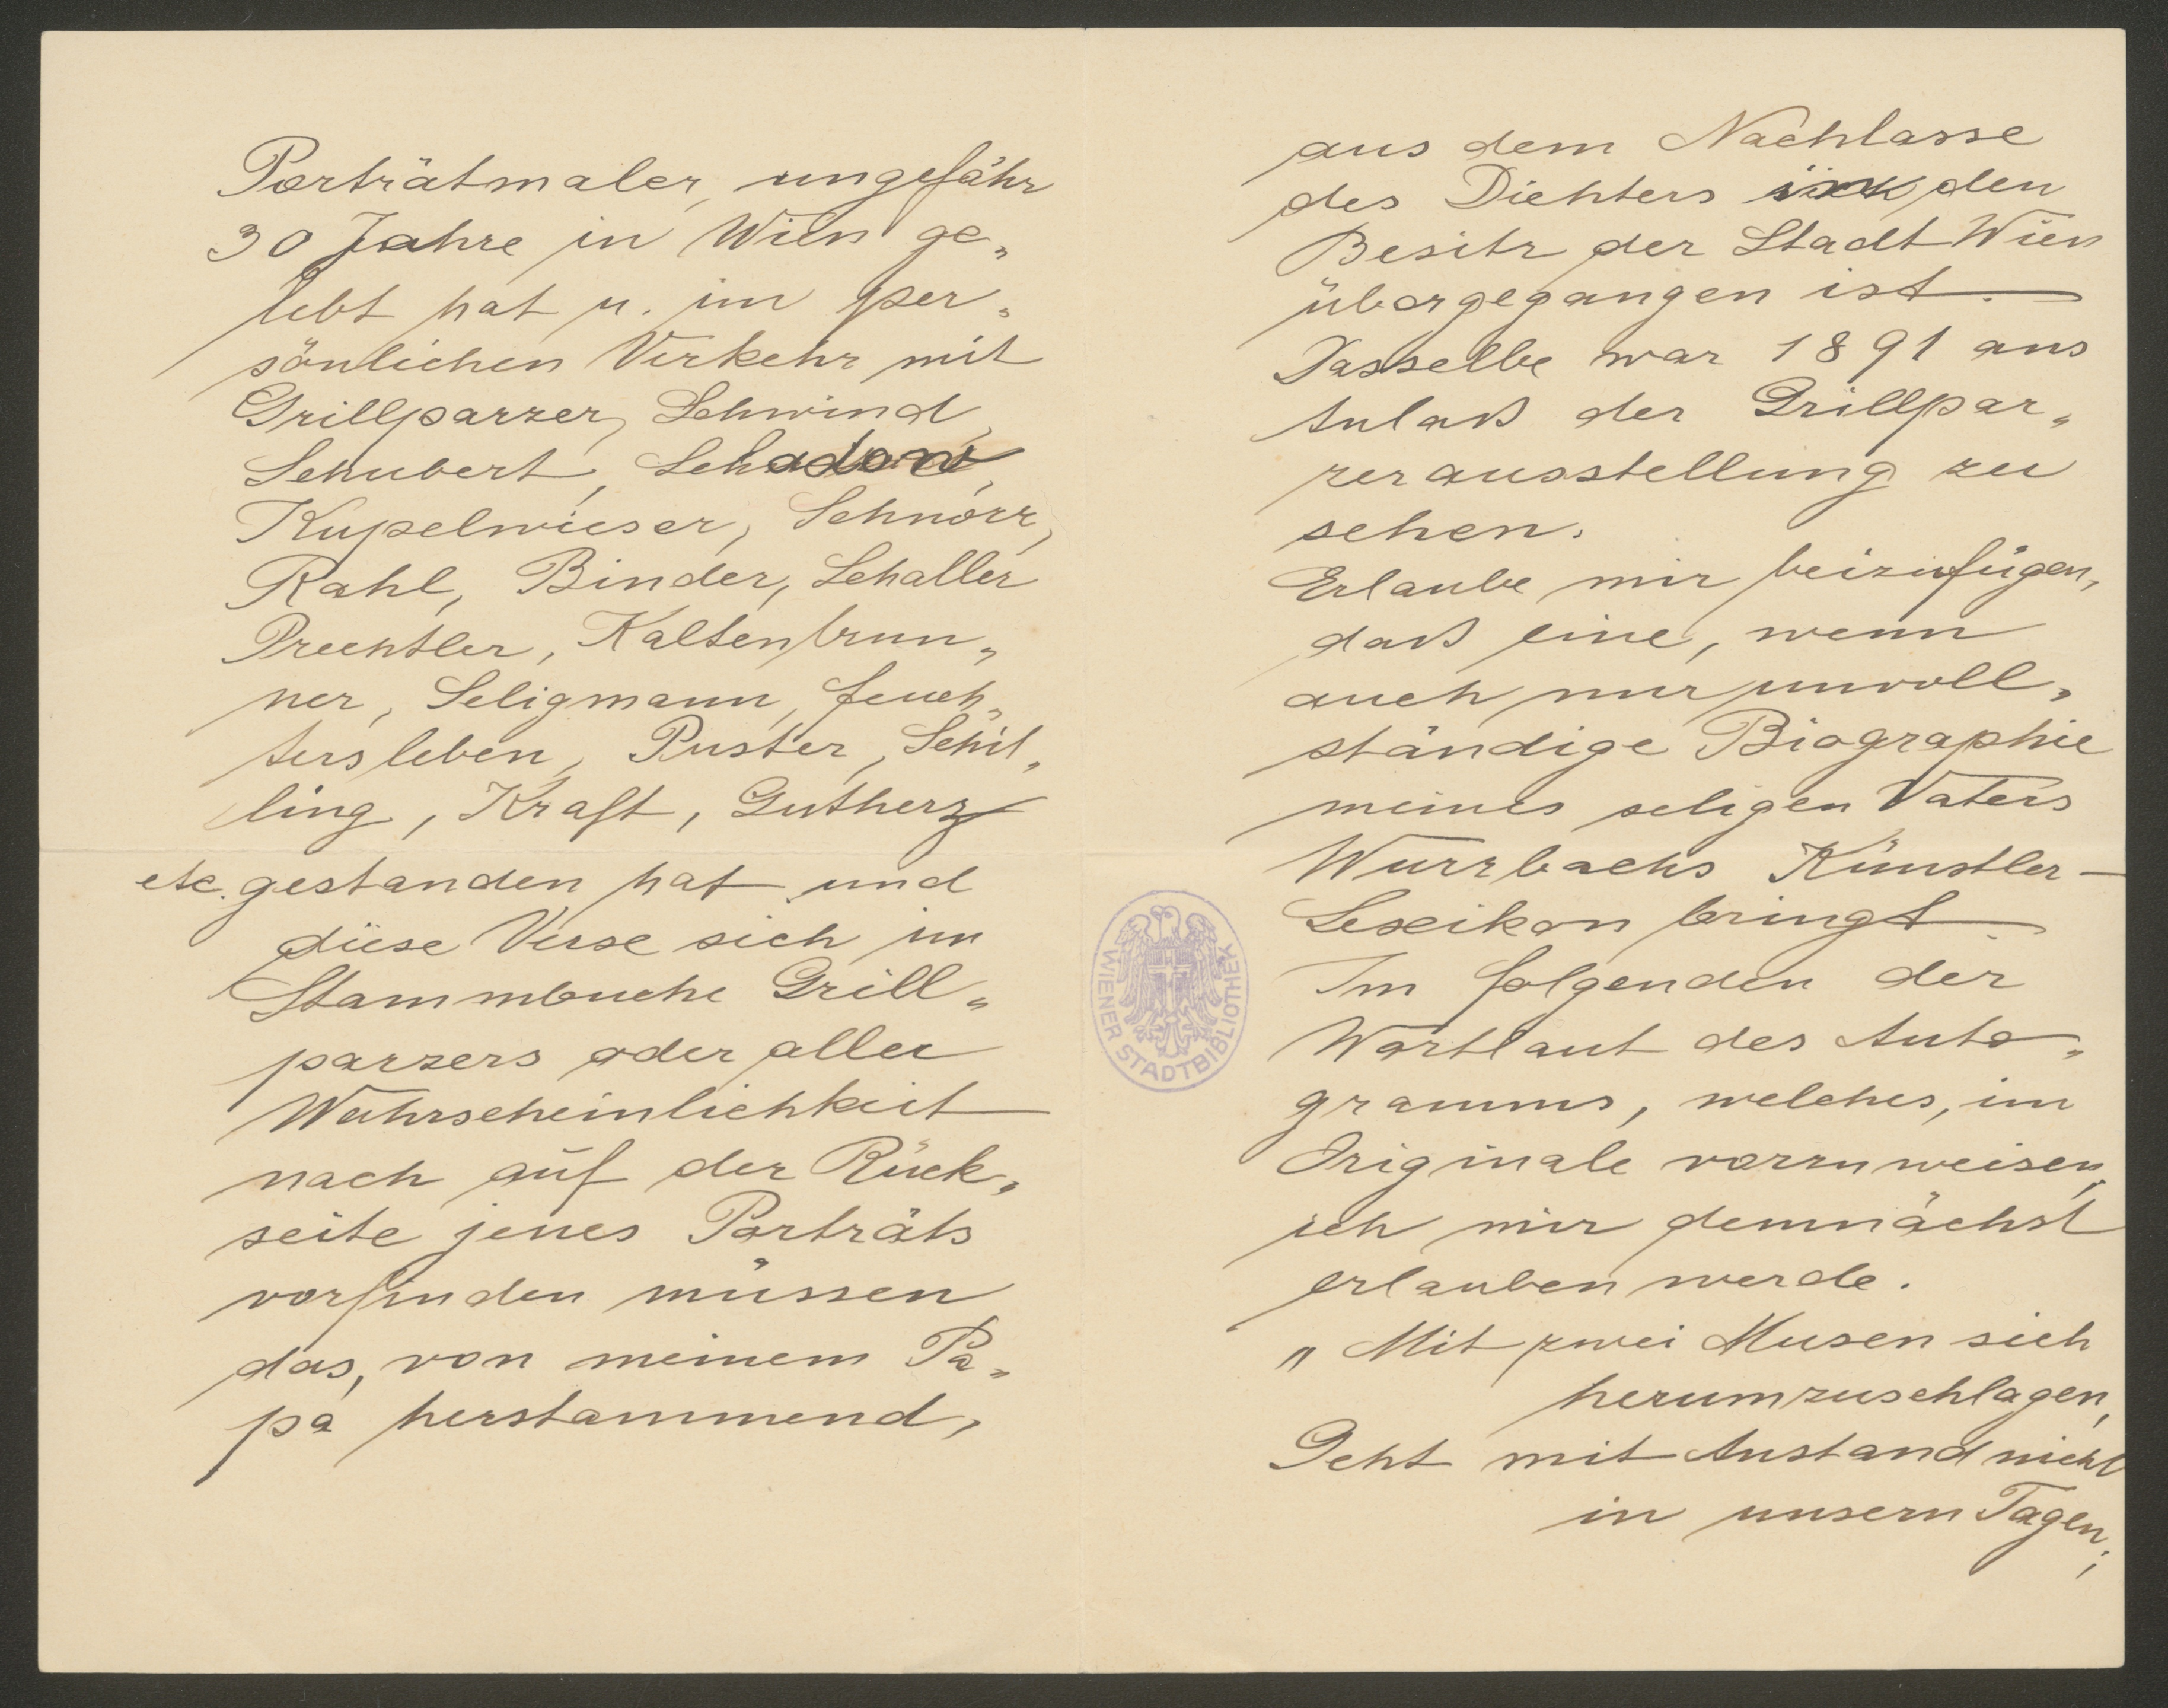 Porträtmaler, ungefähr
30 Jahre in Wien ge„
lebt hat u. im per„
sönlichen Verkehr mit
Grillparzer, Schwind,
Schubert, Schadow,
Kupelwieser, Schnorr,
Rahl, Binder, Schaller
Prechtler, Kaltenbrun„
ner, Seligmann, Feuch„
tersleben, Puster, Schil„
ling, Kraft, Gutherz
etc. gestanden hat und
diese Verse sich im
Stammbuche Grill„
parzers oder aller
Wahrscheinlichkeit
nach auf der Rück„
seite jenes Porträts
vorfinden müssen
das, von meinem Pa„
pa herstammend,
aus dem Nachlasse
des Dichters in den
Besitz der Stadt Wien
übergegangen ist.—
Dasselbe war 1891 aus
Anlaß der Grillpar„
zerausstellung zu
sehen.
Erlaube mir beizufügen,
daß eine, wenn
auch nur unvoll„
ständige Biographie
meines seligen Vaters
Wurzbachs Künstler-
Lexikon bringt.
Im folgenden der
Wortlaut des Auto„
gramms, welches, im
Originale vorzuweisen,
ich mir demnächst
erlauben werde.
„Mit zwei Musen sich
herumzuschlagen,
Geht mit Anstand nicht
in unsern Tagen;
WIENER STADTBIBLIOTHEK